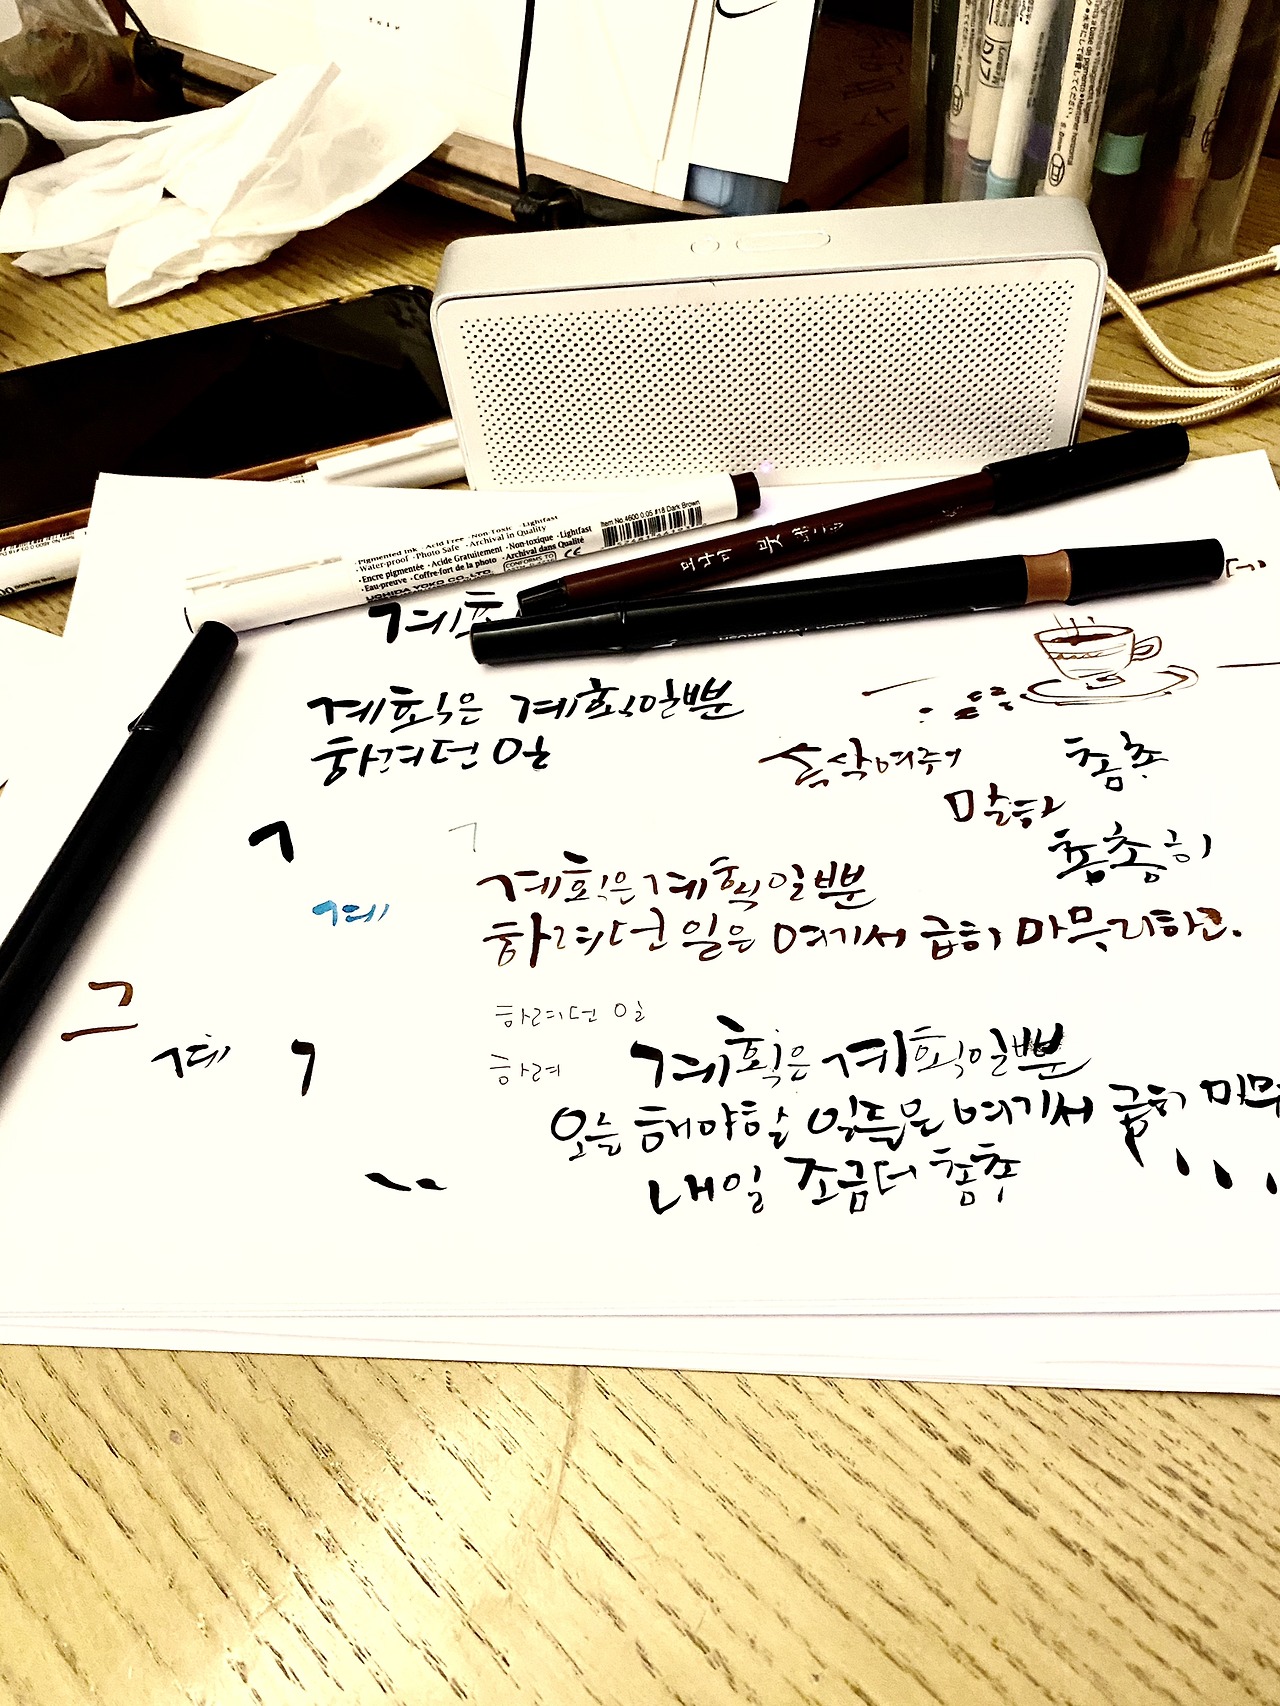 Pigmented Ink · Acid Free · Non-Toxic · Lightfast
· Water-proof · Photo Safe · Archival in Quality
· Encre pigmentée · Acide Gratuitement · Non-toxique · Lightfast
· Eau-preuve · Coffre-fort de la photo · Archival dans Qualité
UCHIDA YOKO CO., LTD.
Item No 4600 0.05 #18 Dark Brown
모나미 붓펜
계획
계획은 계획일뿐
하려던 일
속삭여주어
말하
촘초
촘촘히
ㄱ
ㄱ
계
계획은 계획일뿐
하려던 일은 여기서 급히 마무리하고.
그
계
ㄱ
하려던 일
하려
계획은 계획일뿐
오늘 해야할 일들은 여기서 급히 마무
내일 조금더 촘촘